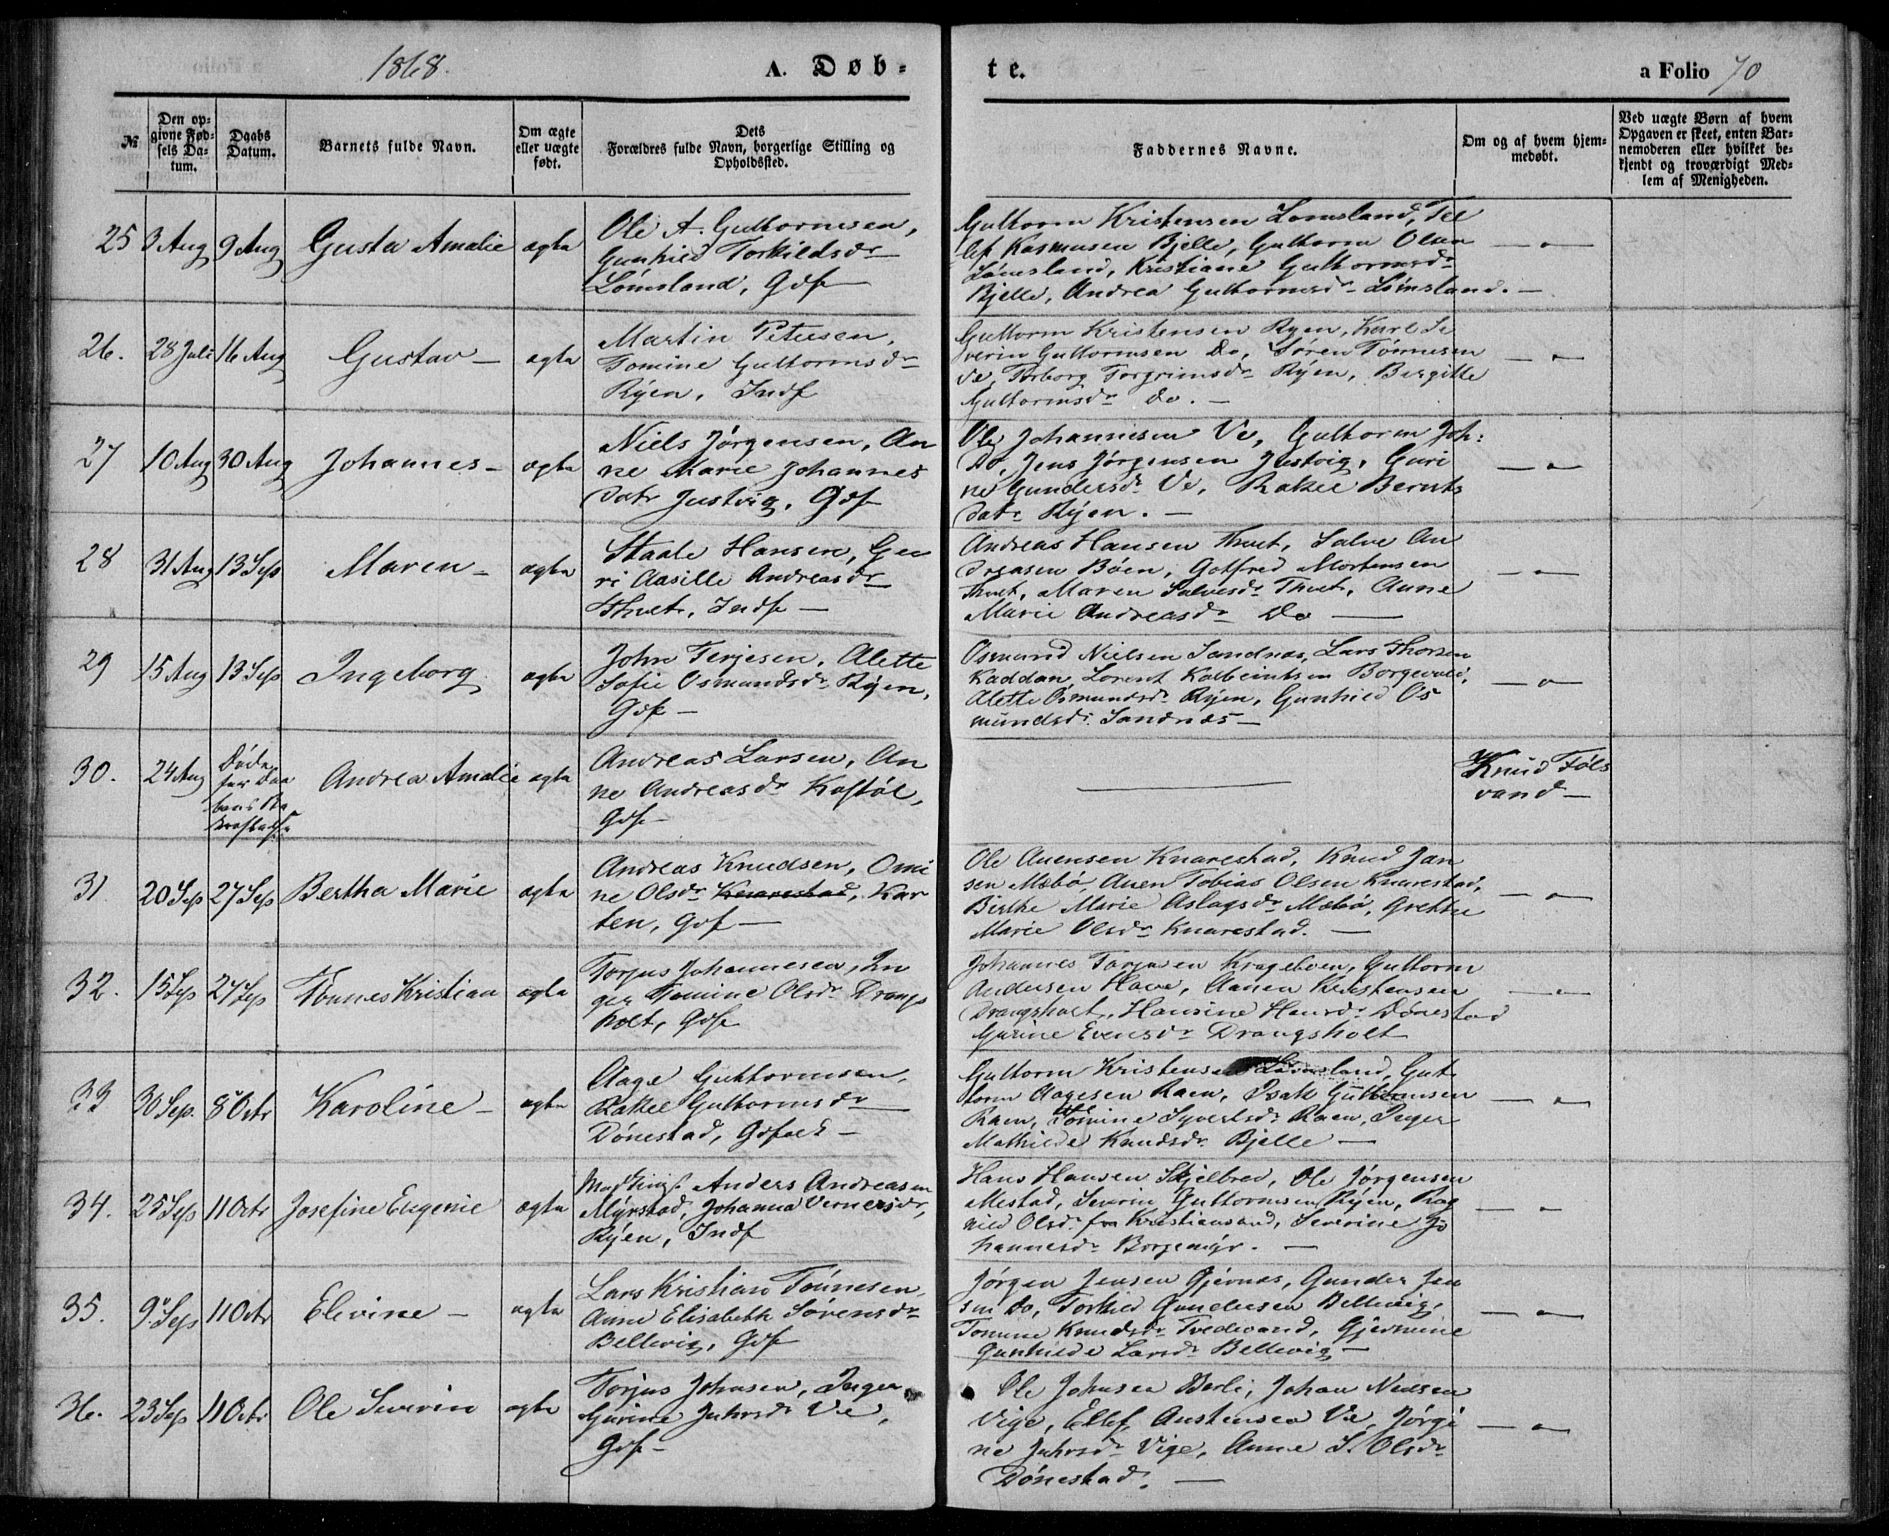 1868.
A. Døb-
te.
a Folio 70
№
Den op-
givne Fød-
sels Da-
tum.
Daabs
Datum.
Barnets fulde Navn.
Om ægte
eller uægte
født.
Dets
Forældres fulde Navn, borgerlige Stilling og
Opholdssted.
Faddernes Navne.
Om og af hvem hjem-
medøbt.
Ved uægte Børn af hvem
Opgaven er skeet, enten Bar-
nemoderen eller hvilket be-
kjendt og troværdigt Med-
lem af Menigheden.
25 3 Aug 9 Aug Gusta Amalie ægte
Ole A. Guttormsen,
Gunhild Torkildsdr
Lömsland, Gdf
Guttorm Kristensen Lomsland, Tel
lef Rasmusen Bjelle, Guttorm Olsen
Lömsland, Kristiane Guttormsdr
Bjelle, Andrea Guttormsdr Lömsland. —
26. 28 Juli 16 Aug Gustav — ægte
Martin Petersen,
Tomine Guttormsdr
Ryen, Indf
Guttorm Kristensen Ryen, Karl Se
verin Guttormsen Do, Søren Tönnesen
do, Torborg Torgrimsdr Ryen, Birgitte
Guttormsdr Do. —
27 10 Aug 30 Aug Johannes — ægte
Niels Jørgensen, An
ne Marie Johannes
datr Justvig, Gdf
Ole Johannesen Ve, Guttorm Joh:
Do, Jens Jørgensen Justvig, Guri
ne Gundersdr Ve, Rakel Bernts
datr Ryen. —
28 31 Aug 13 Sep Maren — ægte
Staale Hansen, Gu
ri Aasille Andreasdr
Thvet, Indf —
Andreas Hansen Thvet, Salve An
dreasen Böen, Gotfred Mortensen
Thvet, Maren Salvesdr Thvet, Anne
Marie Andreasdr Do —
29 15 Aug 13 Sep Ingeborg ægte
John Terjesen, Alette
Sofie Osmundsdr Ryen,
Gdf —
Osmund Nielsen Sandnæs, Lars Thorsen
Kaddan, Lorent Kolbeintsen Borgevold,
Alette Osmundsdr Ryen, Gunhild Os
mundsdr Sandnæs —
30. 24 Aug Døde
før Daa
bens
Andrea Amalie ægte
Andreas Larsen, An
ne Andreasdr Kostöl,
Gdf —
Knud Föls
vand —
31 20 Sep 27 Sep Bertha Marie ægte
Andreas Knudsen, Omi
ne Olsdr Knarestad, Kar
ten, Gdf —
Ole Auensen Knarestad, Knud Jan
sen Mæbö, Auen Tobias Olsen Knarestad,
Birthe Marie Aslagsdr Mæbö, Grethe
Marie Olsdr Knarestad. —
32. 15 Sep 27 Sep Tönnes Kristian ægte
Torjus Johannesen, In
ger Tomine Olsdr Drangs
holt, Gdf
Johannes Tarjusen Krageboen, Guttorm
Andersen Have, Aanen Kristensen
Drangsholt, Hansine Hansdr Dönestad
Gurine Evensdr Drangsholt
33 30 Sep. 8 Octr Karoline — ægte
Aage Guttormsen,
Rakel Guttormsdr
Dönestad, Gdfolk —
Guttorm Kristensen Lömsland, Gut
torm Aagesen Raen, Isak Guttormsen
Raen, Tomine Syvertsdr Raen, Inger
Mathilde Knudsdr Bjelle —
34. 25 Sep 11 Octr Josefine Eugenie ægte
Anders Andreasen
Myrstad, Johanna Vernersdr,
Ryen, Indf
Hans Hansen Skjelbred, Ole Jørgensen
Mestad, Severin Guttormsen Ryen, Rag
nild Olsdr fra Kristiansand, Severine Jo
hannesdr Borgemyr. —
35. 9 Sep 11 Octr Elevine — ægte
Lars Kristian Tönnesen,
Anne Elisabeth Sörensdr
Bellevig, Gdf
Jørgen Jensen Gjernæs, Gunder Jen
sen Do, Torkild Gundersen Bellevig,
Tomine Knudsdr Tvedevand, Gjermine
Gunhilde Larsdr Bellevig —
36. 23 Sep 11 Octr Ole Severin ægte
Torjus Johnsen, Inger
Gurine Juhrsdr Ve,
Gdf —
Ole Johnsen Berli, Johan Nielsen
Vige, Ellef Austensen Ve, Jörgi
ne Juhrsdr Vige, Anne S. Olsdr
Dönestad. —